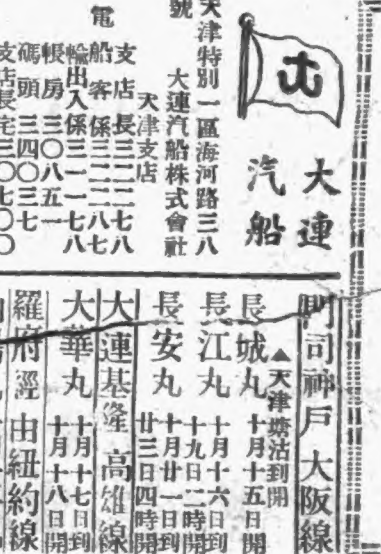 大連
汽船
天津特別一區海河路三八
號 大連汽船株式會社
天津支店
電
支店長三二二七八
船客係三二二八七
輸出入係三一一七八
帳房三〇八五一
碼頭三四〇三七
支店長宅三〇七〇〇
門司神戶大阪線
▲天津塘沽到開
長城丸 十月十五日開
長江丸 十月十六日到
十九日二時開
長安丸 十月廿一日到
廿三日四時開
大連基隆高雄線
大華丸 十月十七日到
十月十八日開
羅府經由紐約線